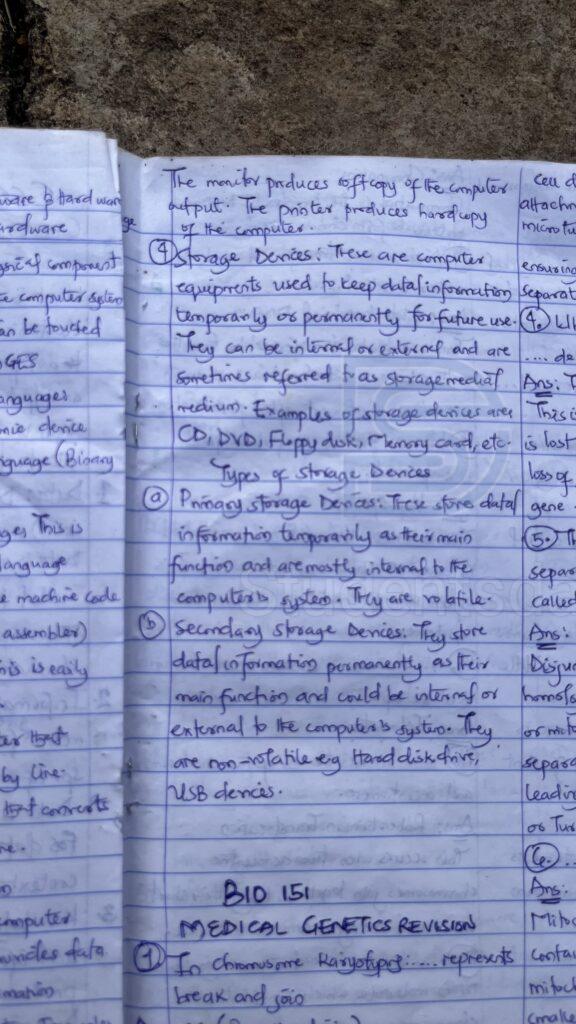 ware & Hardware
ardware
component
e computer system
an be touched
GES
anguages
device
guage (Binary
ge, This is
language
e machine code
assembler)
his is easily
by line.
converts
computer
data
The monitor produces softcopy of the computer
output. The printer produces hardcopy
of the computer.
④ Storage Devices: These are computer
equipments used to keep data/information
temporarily or permanently for future use.
They can be internal or external and are
sometimes referred to as storage media/
medium. Examples of storage devices are;
CD, DVD, Floppy disk, Memory card, etc.
Types of Storage Devices
ⓐ Primary storage Devices: These store data/
information temporarily as their main
function and are mostly internal to the
computer's system. They are volatile.
ⓑ Secondary Storage Devices: They store
data/information permanently as their
main function and could be internal or
external to the computer's system. They
are non-volatile e.g Hard disk drive,
USB devices.
BIO 151
MEDICAL GENETICS REVISION
① In chromosome Karyotyping: .... represents
break and join
cell d
attachm
microtu
ensuring
separat
④.
.... de
Ans: T
This is
is lost
loss of
gene.
⑤. Th
separ
called
Ans:
Disju
homolo
or mito
separa
leading
or Tur
⑥. ...
Ans:
Mitoc
contai
mitoch
(smalle